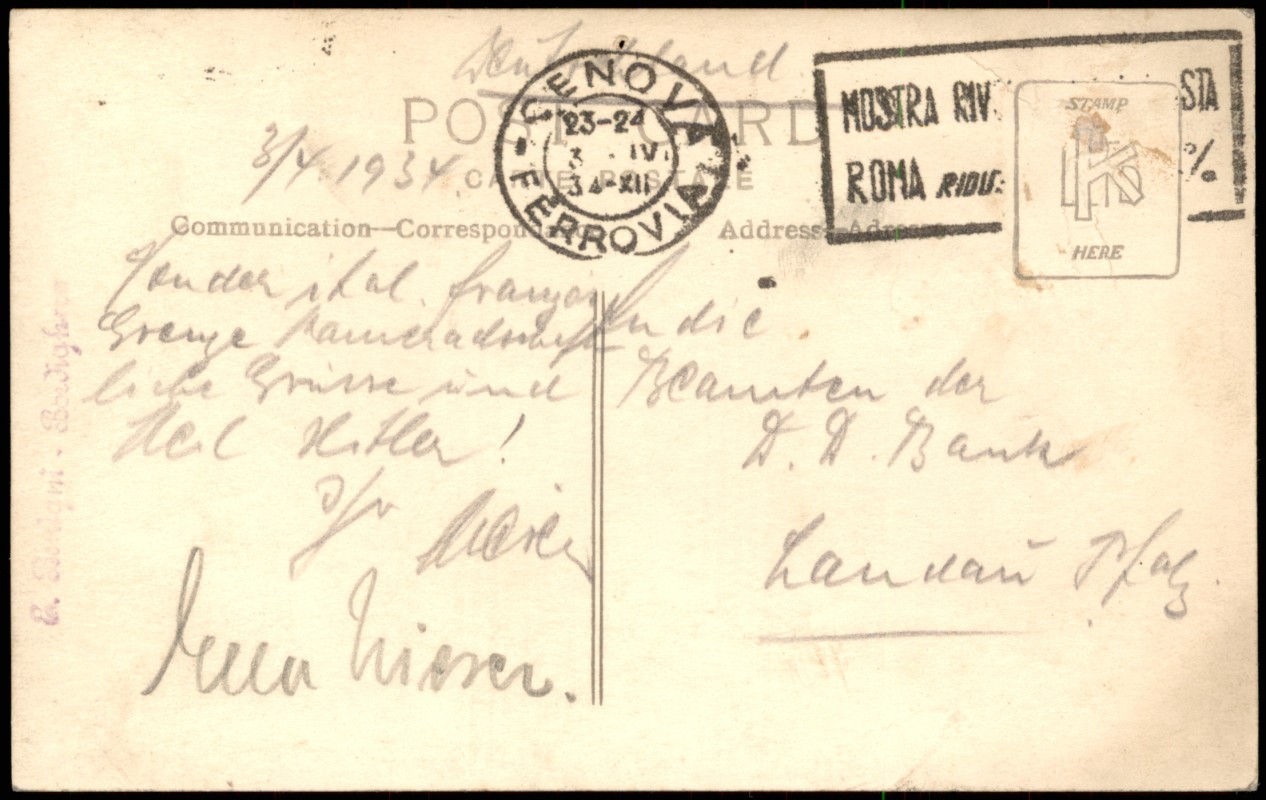 Deutschland
POST CARD
GENOVA
FERROVIA
23-24
3 IV
34-XII
MOSTRA RIV STA
ROMA RIDU: %
STAMP
HERE
3/4 1934
CARTE POSTALE
Communication—Correspond
Address—Adresse
Von der ital. franzos
Grenze Kameradschaft
liche Grüsse und
Heil Hitler!
An die
Beamten der
D. D. Bank
Landau Pfalz.